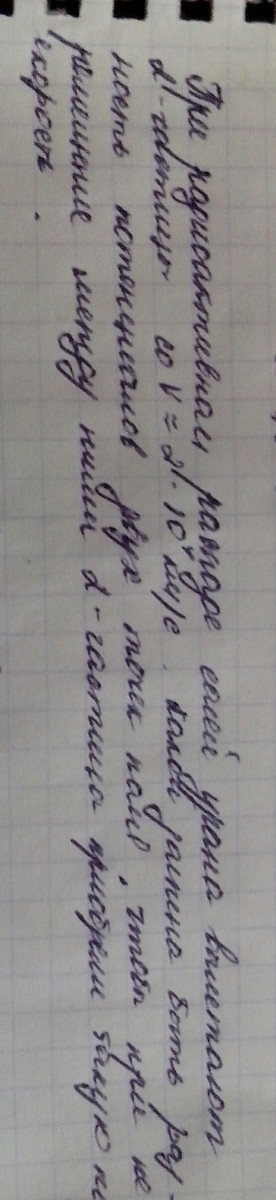 При радиоактивном распаде солей урана вылетают
α-частицы со V = 2·10⁴ км/с. Какова должна быть раз
ность потенциалов двух точек поля, чтобы при пе
ремещении между ними α-частица приобрела такую же
скорость.